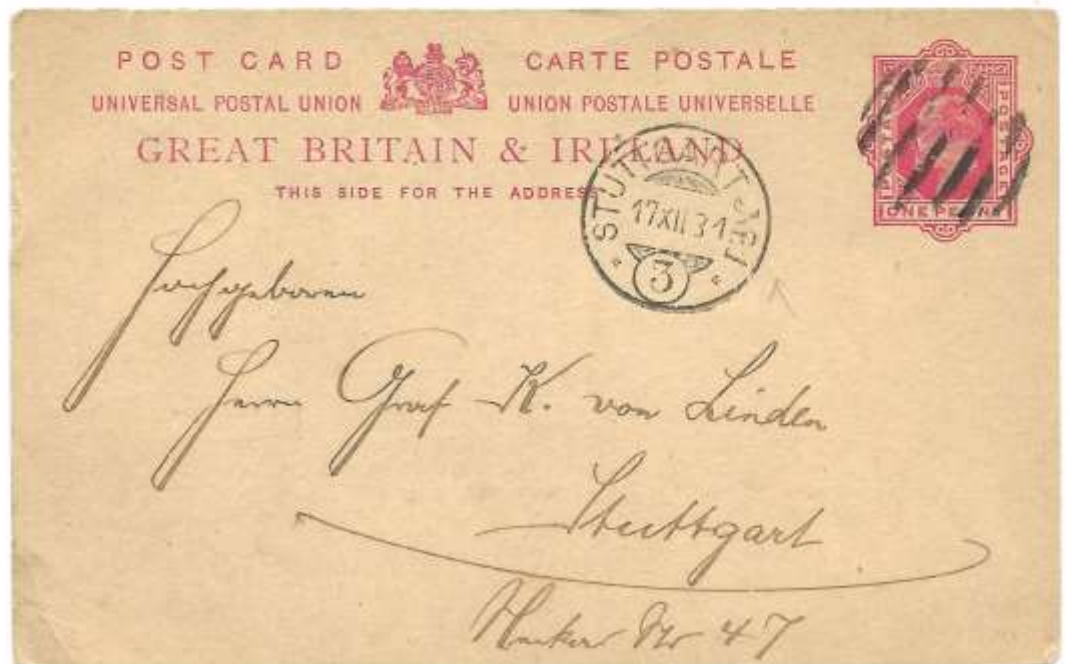 POST CARD CARTE POSTALE
UNIVERSAL POSTAL UNION UNION POSTALE UNIVERSELLE
GREAT BRITAIN & IRELAND
THIS SIDE FOR THE ADDRESS
POSTAGE
ONE PENNY
STUTTGART
17XII31
3
Hochgeboren
Herrn Graf K. von Linden
Stuttgart
47